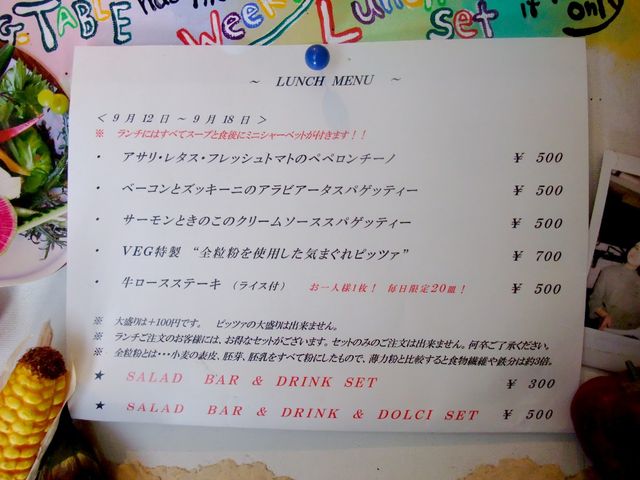 GETABLE
Weekly Lunch set
it
only
～ LUNCH MENU ～
＜ 9 月 12 日 ～ 9 月 18 日 ＞
※ ランチにはすべてスープと食後にミニシャーベットが付きます！！
・ アサリ・レタス・フレッシュトマトのペペロンチーノ ￥ 500
・ ベーコンとズッキーニのアラビアータスパゲッティー ￥ 500
・ サーモンときのこのクリームソーススパゲッティー ￥ 500
・ VEG特製 “全粒粉を使用した気まぐれピッツァ” ￥ 700
・ 牛ロースステーキ （ライス付） お一人様1枚！ 毎日限定20皿！ ￥ 500
※ 大盛りは＋100円です。 ピッツァの大盛りは出来ません。
※ ランチご注文のお客様には、お得なセットがございます。セットのみのご注文は出来ません。何卒ご了承ください。
※ 全粒粉とは・・・小麦の表皮、胚芽、胚乳をすべて粉にしたもので、薄力粉と比較すると食物繊維や鉄分は約3倍。
★ SALAD BAR & DRINK SET ￥ 300
★ SALAD BAR & DRINK & DOLCI SET ￥ 500